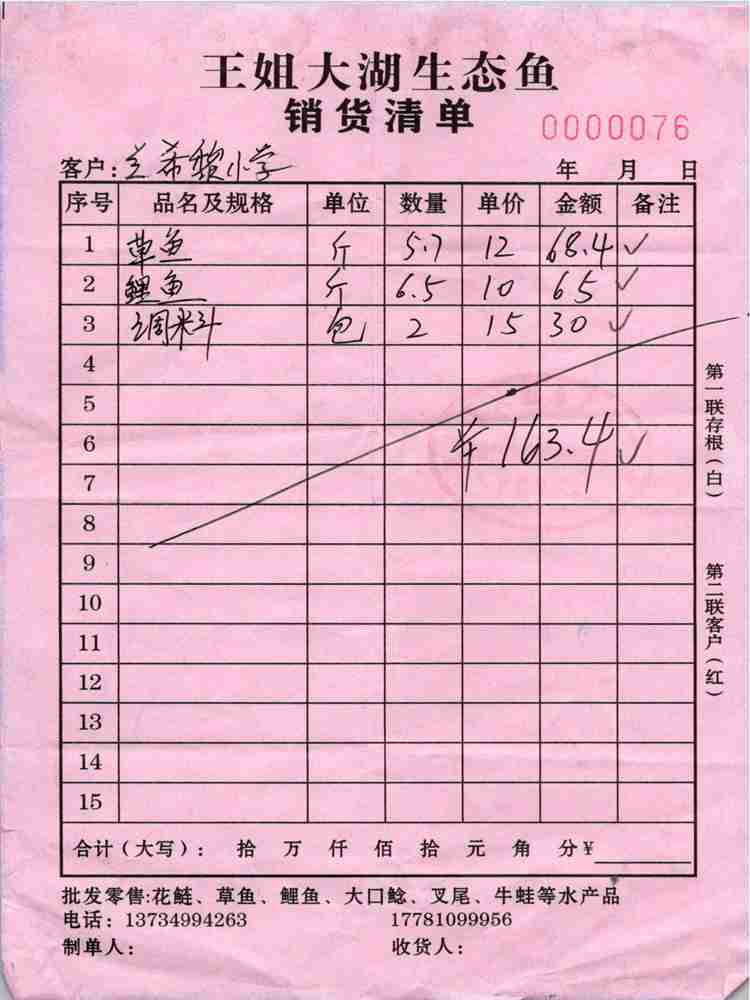 王姐大湖生态鱼
销货清单
0000076
客户：兰希黎小学 年 月 日
序号 品名及规格 单位 数量 单价 金额 备注
1 草鱼 斤 5.7 12 68.4 ✓
2 鲤鱼 斤 6.5 10 65 ✓
3 调料 包 2 15 30 ✓
4
5
6 ¥163.4 ✓
7
8
9
10
11
12
13
14
15
合计（大写）： 拾 万 仟 佰 拾 元 角 分¥
批发零售:花鲢、草鱼、鲤鱼、大口鲶、叉尾、牛蛙等水产品
电话：13734994263 17781099956
制单人： 收货人：
第一联存根（白）
第二联客户（红）